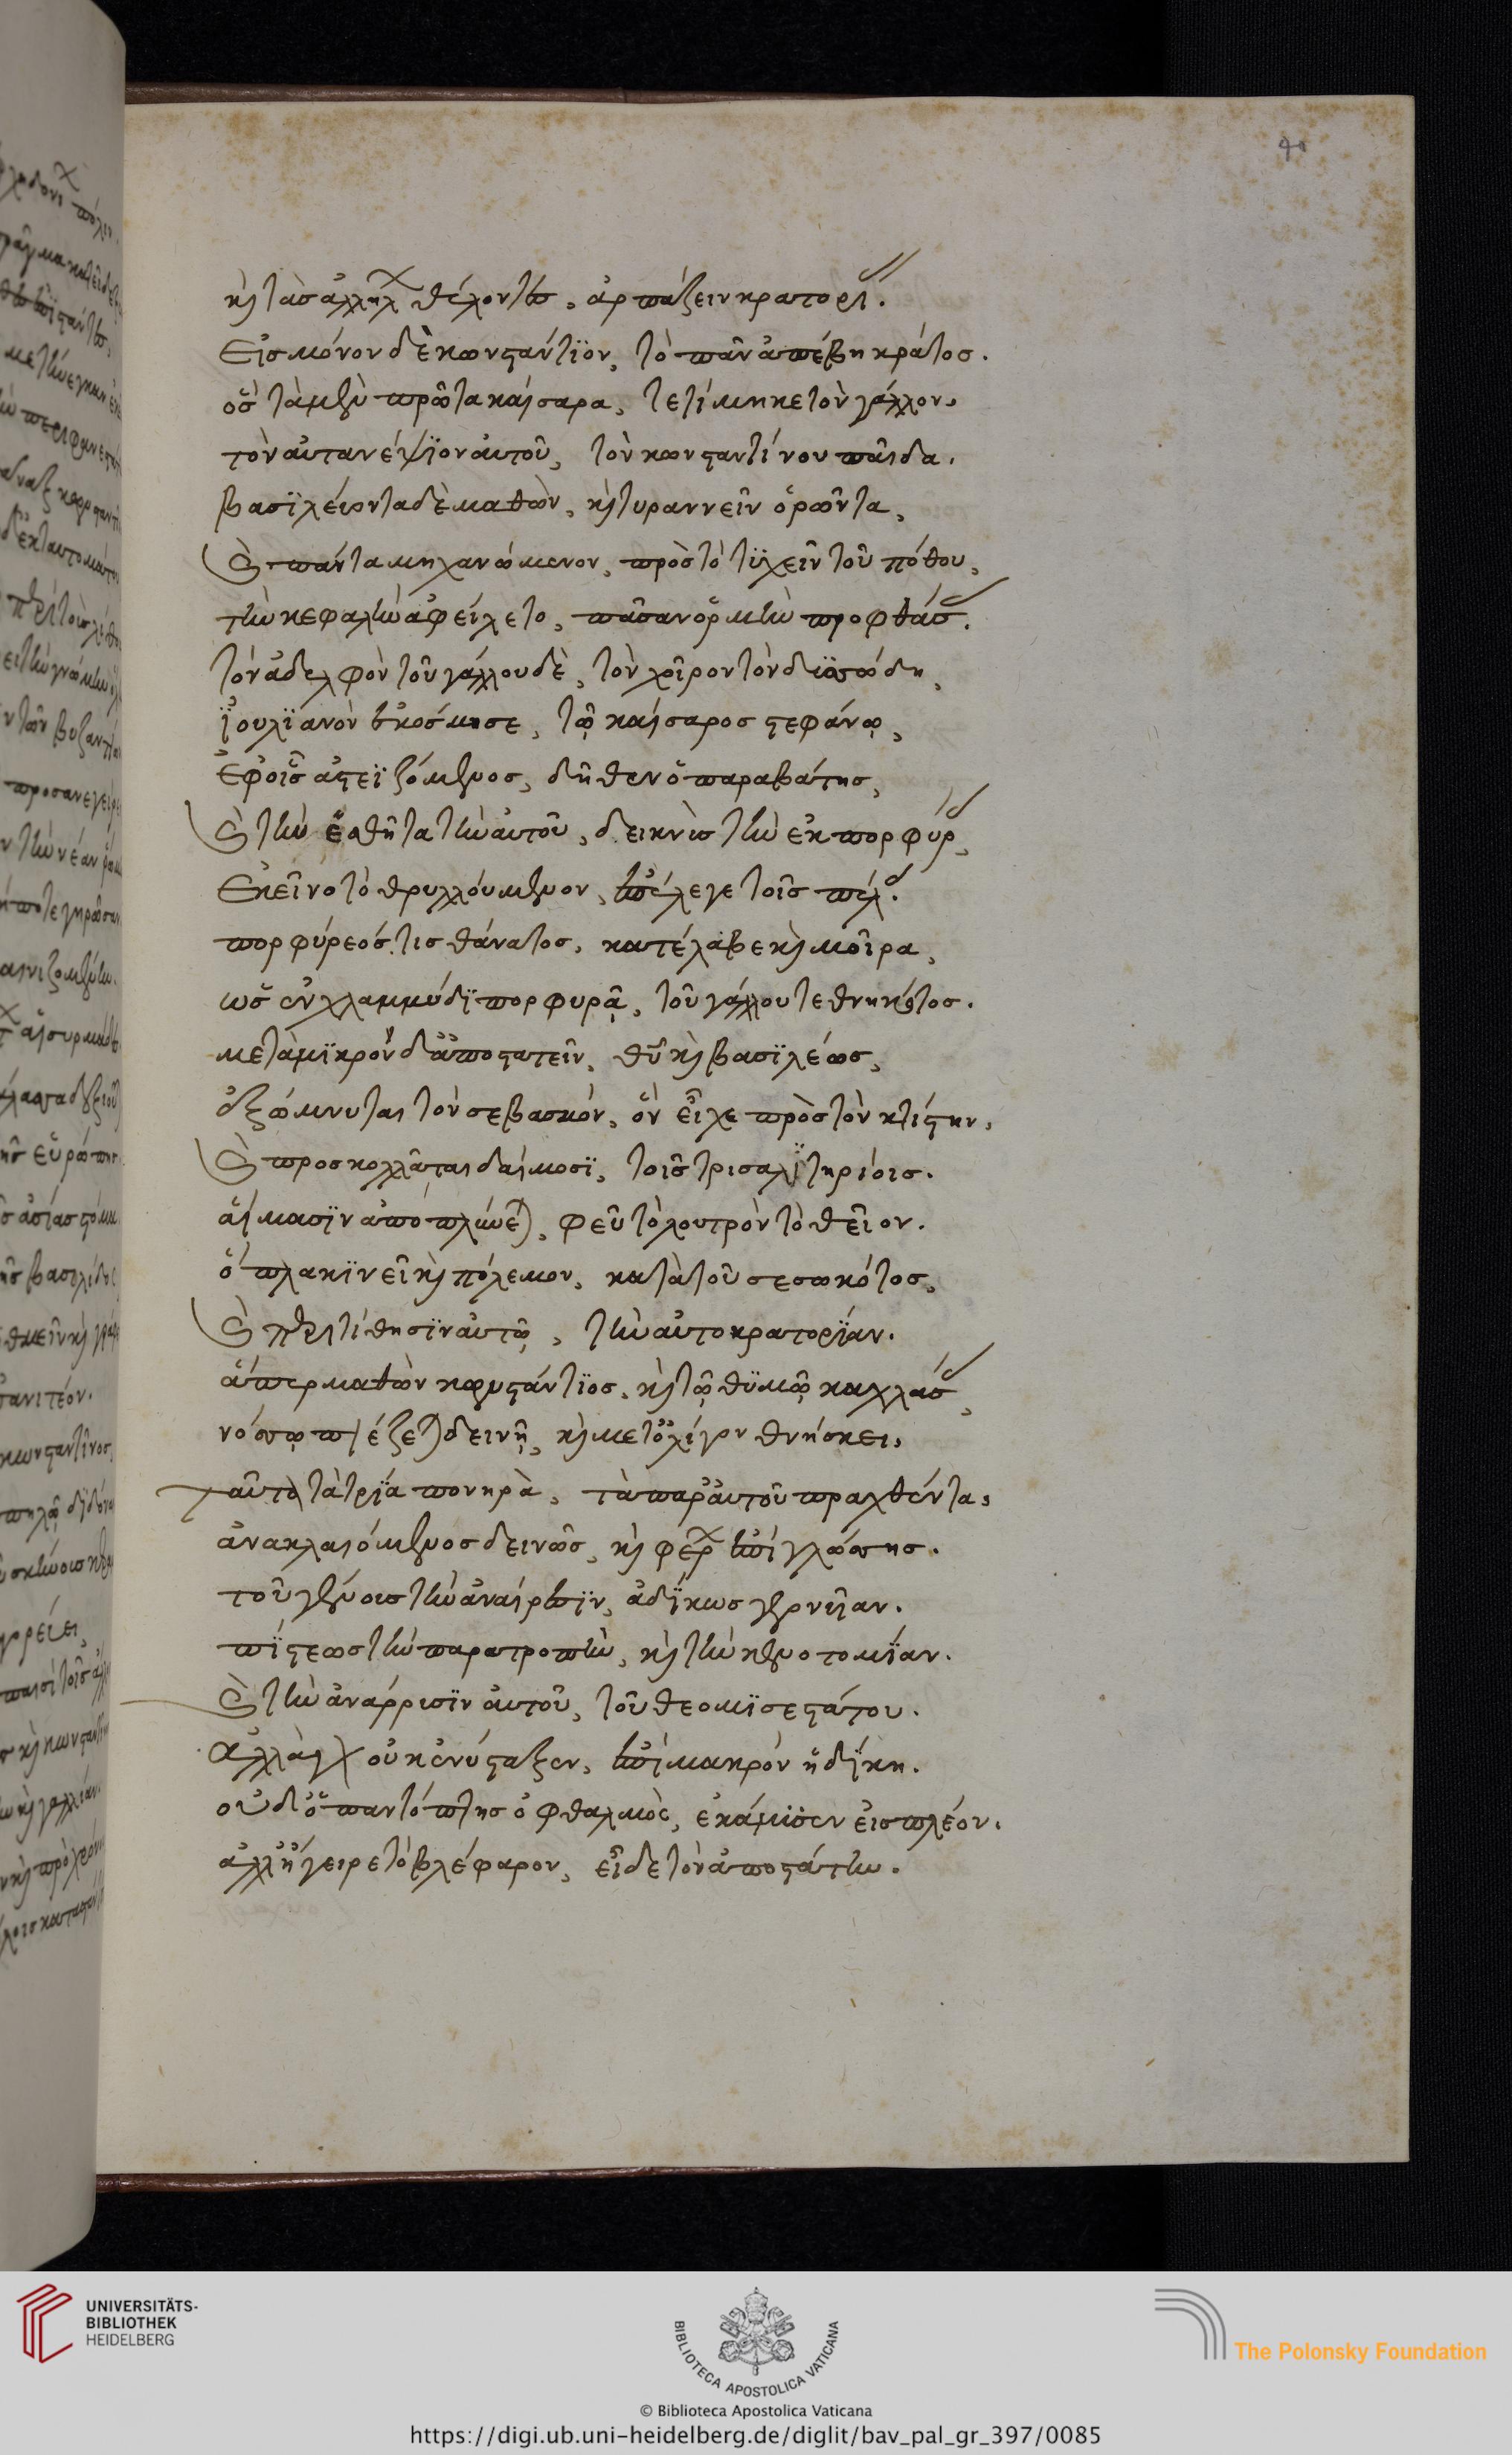 40
καὶ τὰς ἀλλήλων θέλοντες, ἁρπάζειν κρατορίας.
Εἰς μόνον δὲ κωνστάντιον, τὸ πᾶν ἀπέβη κράτος.
ὃς τὰ μὲν πρῶτα καίσαρα, τετίμηκε τὸν γάλλον,
τὸν αὐτανέψϊον αὐτοῦ, τὸν κωνσταντίνου παῖδα.
βασϊλειῶντα δὲ μαθὼν, καὶ τυραννεῖν ὁρῶντα,
Καὶ πάντα μηχανώμενον, πρὸς τὸ τϋχεῖν τοῦ πόθου,
τὴν κεφαλὴν ἀφείλετο, πᾶσαν ὁρμὴν προφθάσας.
τὸν ἀδελφὸν τοῦ γάλλου δὲ, τὸν χοῖρον τὸν δυσώδη,
ἰουλϊανὸν ἐκόσμησε, τῷ καίσαρος στεφάνῳ,
ἐφ οἷς ἀστεϊζόμενος, δῆθεν ὁ παραβάτης,
Καὶ τὴν ἐσθῆτα τὴν αὐτοῦ, δεικνὺς τὴν ἐκ πορφύρας,
Ἐκεῖνο τὸ θρυλλούμενον, ἐπέλεγε τοῖς πέλας.
πορφύρεός τις θάνατος, κατέλαβε καὶ μοῖρα,
ὡς ἐν χλαμμύδϊ πορφυρᾷ, τοῦ γάλλου τεθνηκότος.
μετὰ μϊκρὸν δ' ἀποστατεῖν, θεοῦ καὶ βασϊλέως,
ἐξώμνυται τὸν σεβασμόν, ὃν εἶχε πρὸς τὸν κτίστην,
Καὶ προσκολλᾶται δαίμοσϊ, τοῖς τρισαλϊτηρίοις.
αἵμασϊν ἀποπλύνεται, φεῦ τὸ λουτρὸν τὸ θεῖον.
ὅπλα κϊνεῖ καὶ πόλεμον, κατὰ τοῦ σεσωκότος,
Καὶ περιτίθησϊν αὐτῷ, τὴν αὐτοκρατορΐαν.
ἅπερ μαθὼν κωνστάντϊος, καὶ τῷ θϋμῷ καχλάσας,
νόσῳ πιέζεται δεινῇ, καὶ μετ' ὀλίγον θνήσκει,
ταῦτα τὰ τρΐα πονηρὰ, τὰ παρ' αὐτοῦ πραχθέντα,
ἀνακλαιόμενος δεινῶς, καὶ φέρων ἐπὶ γλώσσης.
τοῦ γένους τὴν ἀναίρεσϊν, ἀδΐκως γενομένην.
πΐστεως τὴν παρατροπὴν, καὶ τὴν καινοτομΐαν.
Καὶ τὴν ἀνάρρησϊν αὐτοῦ, τοῦ θεομϊσεστάτου.
Ἀλλὰ γὰρ οὐκ ἐνύσταξεν, ἐπὶ μακρὸν ἡ δΐκη.
οὐδ' ὁ παντόπτης ὀφθαλμὸς, ἐκάμμϋσεν εἰς πλέον.
ἀλλ' ἤγειρε τὸ βλέφαρον, εἶδε τὸν ἀποστάτην.
UNIVERSITÄTS-
BIBLIOTHEK
HEIDELBERG
BIBLIOTECA APOSTOLICA VATICANA
The Polonsky Foundation
© Biblioteca Apostolica Vaticana
https://digi.ub.uni-heidelberg.de/diglit/bav_pal_gr_397/0085